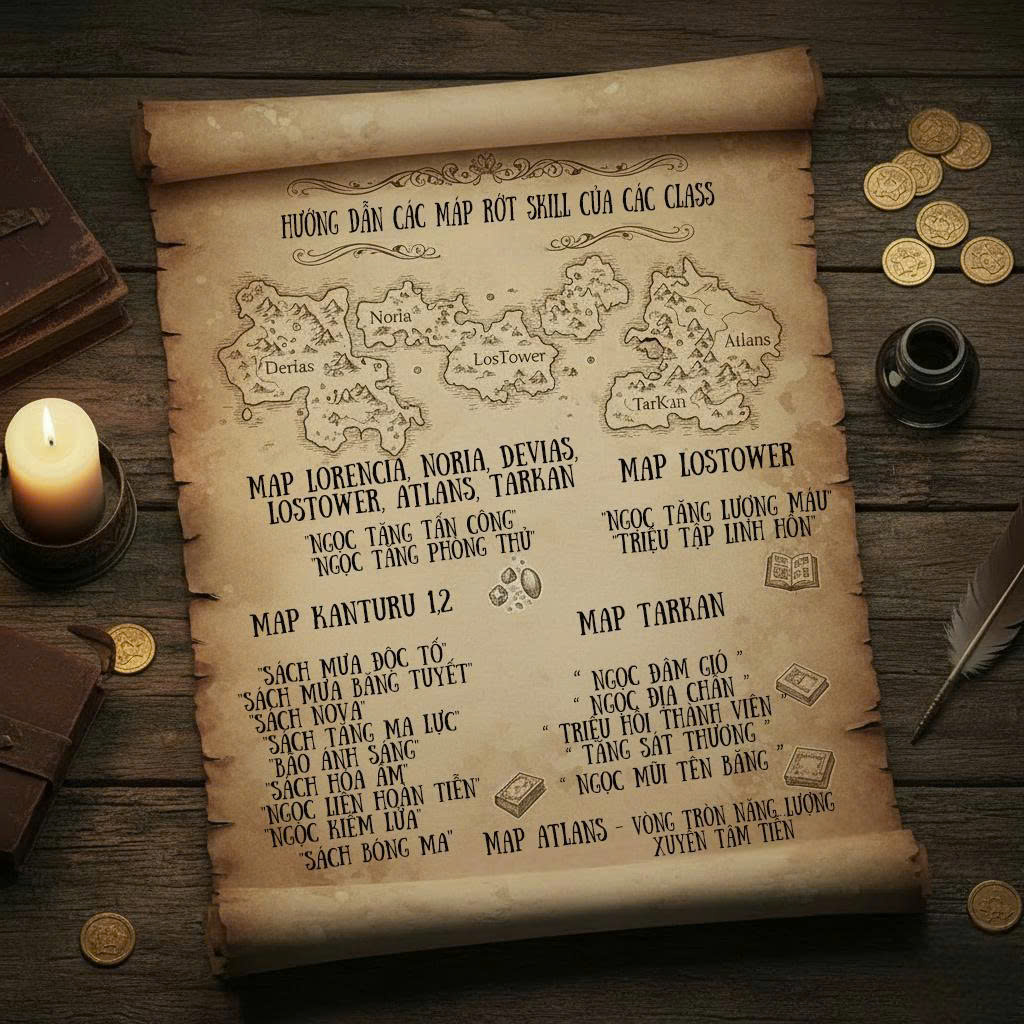 HƯỚNG DẪN CÁC MÁP RỚT SKILL CỦA CÁC CLASS
Noria
Derias
LosTower
Atlans
TarKan
MAP LORENCIA, NORIA, DEVIAS,
LOSTOWER, ATLANS, TARKAN
"NGỌC TĂNG TẤN CÔNG"
"NGỌC TĂNG PHÒNG THỦ"
MAP LOSTOWER
"NGỌC TĂNG LƯỢNG MÁU"
"TRIỆU TẬP LINH HỒN"
MAP KANTURU 1,2
"SÁCH MƯA ĐỘC TỐ"
"SÁCH MƯA BĂNG TUYẾT"
"SÁCH NOVA"
"SÁCH TĂNG MA LỰC"
"BÃO ÁNH SÁNG"
"SÁCH HỎA ÂM"
"NGỌC LIÊN HOÀN TIỄN"
"NGỌC KIẾM LỬA"
"SÁCH BÓNG MA"
MAP TARKAN
" NGỌC ĐÂM GIÓ "
" NGỌC ĐỊA CHẤN "
" TRIỆU HỒI THÀNH VIÊN "
" TĂNG SÁT THƯƠNG "
" NGỌC MŨI TÊN BĂNG "
MAP ATLANS - VÒNG TRÒN NĂNG LƯỢNG
XUYÊN TÂM TIỄN